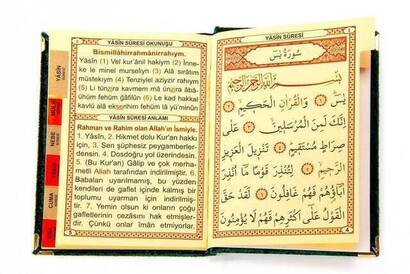 YÂSÎN SÛRESİ OKUNUŞU
Bismillâhirrahmânirrahıym.
Yâsîn (1) Vel kur'ânil hakiym (2) İnne-
ke le minel murseliyn (3) Alâ sırâtım
müstekıym (4) Tenziylel aziyzir rahıym
(5) Li tünzira kavmem mâ ünzira âbâ-
ühüm fehüm ğâfilûn (6) Le kad hakkal
kavlü alâ ekserihim fehüm lâ yü'minûn
YÂSÎN SÛRESİ ANLAMI
Rahman ve Rahim olan Allah'ın İsmiyle.
1. Yâsîn, 2. Hikmet dolu Kur'an hakkı
için, 3. Sen şüphesiz peygamberler-
densin. 4. Dosdoğru yol üzerindesin.
5. (Bu Kur'an) Gâlip ve çok merha-
metli Allah tarafından indirilmiştir. 6.
Babaları uyarılmamış, bu yüzden
kendileri de gaflet içinde kalmış bir
toplumu uyarman için indirilmiş-
tir. 7. Yemin olsun ki onların çoğu
gafletlerinin cezasını hak etmişler-
dir. Çünkü onlar îman etmiyorlar.
YÂSÎN
MÜLK
NEBE
CUMA
YÂSÎN SÛRESİ
سُورَةُ يٰسٓ
بِسْمِ اللّٰهِ الرَّحْمٰنِ الرَّحِيمِ
يٰسٓ ﴿١﴾ وَالْقُرْاٰنِ الْحَكِيمِ ﴿٢﴾
اِنَّكَ لَمِنَ الْمُرْسَلِينَ ﴿٣﴾ عَلٰى
صِرَاطٍ مُسْتَقِيمٍ ﴿٤﴾ تَنْزِيلَ الْعَزِيزِ
الرَّحِيمِ ﴿٥﴾ لِتُنْذِرَ قَوْمًا مَٓا اُنْذِرَ
اٰبَٓاؤُهُمْ فَهُمْ غَافِلُونَ ﴿٦﴾ لَقَدْ حَقَّ
الْقَوْلُ عَلٰٓى اَكْثَرِهِمْ فَهُمْ لَا يُؤْمِنُونَ
4